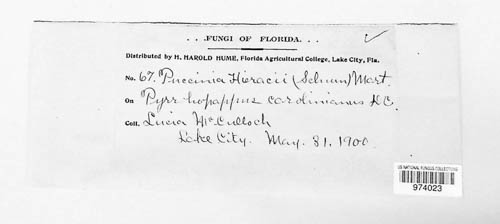 . . FUNGI OF FLORIDA. . .
Distributed by H. HAROLD HUME, Florida Agricultural College, Lake City, Fla.
No. 67. Puccinia Hieracii (Schum) Mart.
On Pyrrhopappus carolinianus DC.
Coll. Lucia McCulloch
Lake City. May. 31. 1900.
US NATIONAL FUNGUS COLLECTIONS
974023